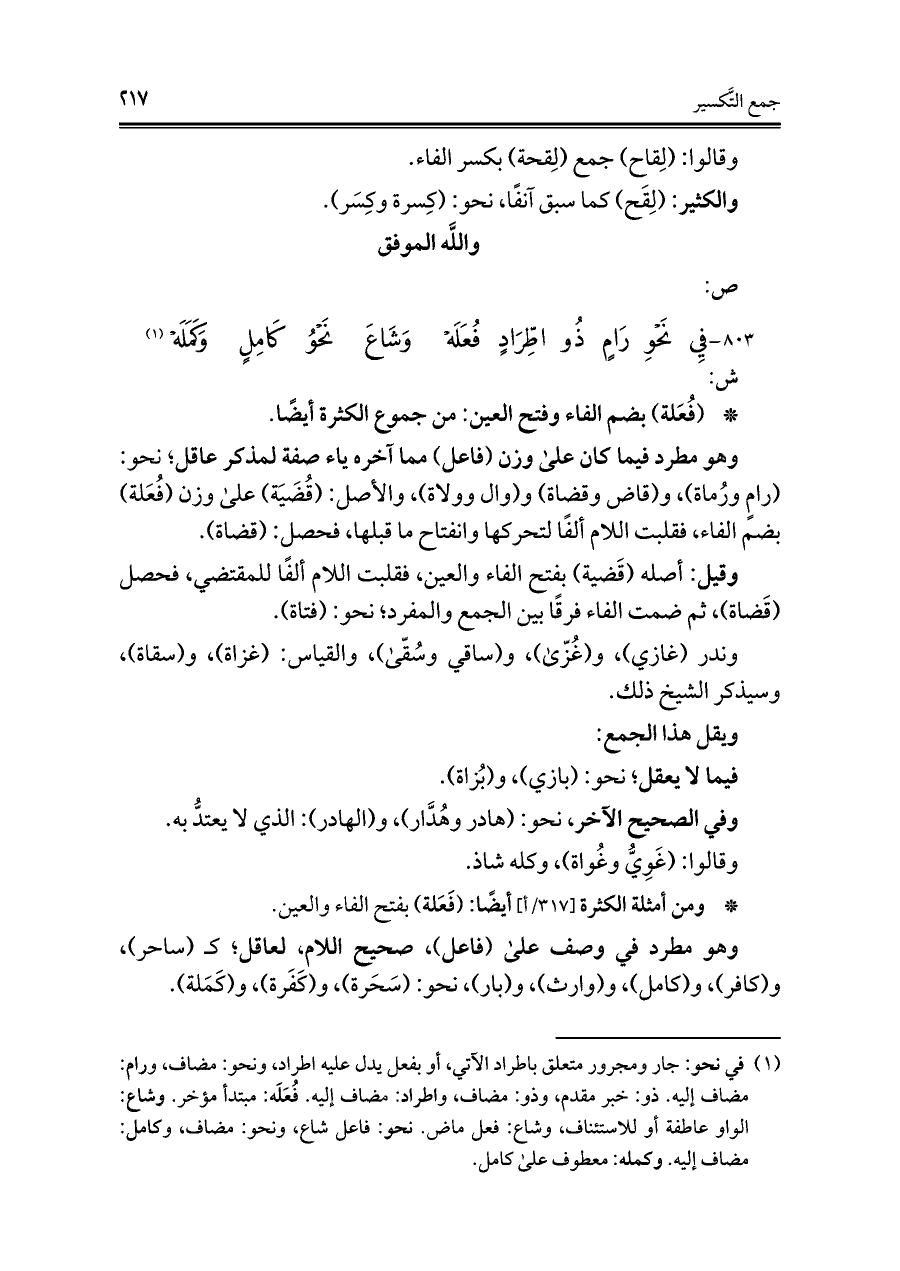 جمع التَّكسير ٢١٧
وقالوا: (لِقاح) جمع (لِقحة) بكسر الفاء.
والكثير: (لِقَح) كما سبق آنفًا، نحو: (كِسرة وكِسَر).
واللَّه الموفق
ص:
٨٠٣-فِي نَحْوِ رَامٍ ذُو اطِّرَادٍ فُعَلَهْ وَشَاعَ نَحْوُ كَامِلٍ وَكَمَلَهْ (١)
ش:
* (فُعَلة) بضم الفاء وفتح العين: من جموع الكثرة أيضًا.
وهو مطرد فيما كان علىٰ وزن (فاعل) مما آخره ياء صفة لمذكر عاقل؛ نحو:
(رامٍ ورُماة)، و(قاض وقضاة) و(وال وولاة)، والأصل: (قُضَيَة) علىٰ وزن (فُعَلة)
بضم الفاء، فقلبت اللام ألفًا لتحركها وانفتاح ما قبلها، فحصل: (قضاة).
وقيل: أصله (قَضية) بفتح الفاء والعين، فقلبت اللام ألفًا للمقتضي، فحصل
(قَضاة)، ثم ضمت الفاء فرقًا بين الجمع والمفرد؛ نحو: (فتاة).
وندر (غازي)، و(غُزّىٰ)، و(ساقي وسُقّىٰ)، والقياس: (غزاة)، و(سقاة)،
وسيذكر الشيخ ذلك.
ويقل هذا الجمع:
فيما لا يعقل؛ نحو: (بازي)، و(بُزاة).
وفي الصحيح الآخر، نحو: (هادر وهُدَّار)، و(الهادر): الذي لا يعتدُّ به.
وقالوا: (غَوِيٌّ وغُواة)، وكله شاذ.
* ومن أمثلة الكثرة [٣١٧/أ] أيضًا: (فَعَلة) بفتح الفاء والعين.
وهو مطرد في وصف علىٰ (فاعل)، صحيح اللام، لعاقل؛ كـ (ساحر)،
و(كافر)، و(كامل)، و(وارث)، و(بار)، نحو: (سَحَرة)، و(كَفَرة)، و(كَمَلة).
(١) في نحو: جار ومجرور متعلق باطراد الآتي، أو بفعل يدل عليه اطراد، ونحو: مضاف، ورام:
مضاف إليه. ذو: خبر مقدم، وذو: مضاف، واطراد: مضاف إليه. فُعَلَه: مبتدأ مؤخر. وشاع:
الواو عاطفة أو للاستئناف، وشاع: فعل ماض. نحو: فاعل شاع، ونحو: مضاف، وكامل:
مضاف إليه. وكمله: معطوف علىٰ كامل.